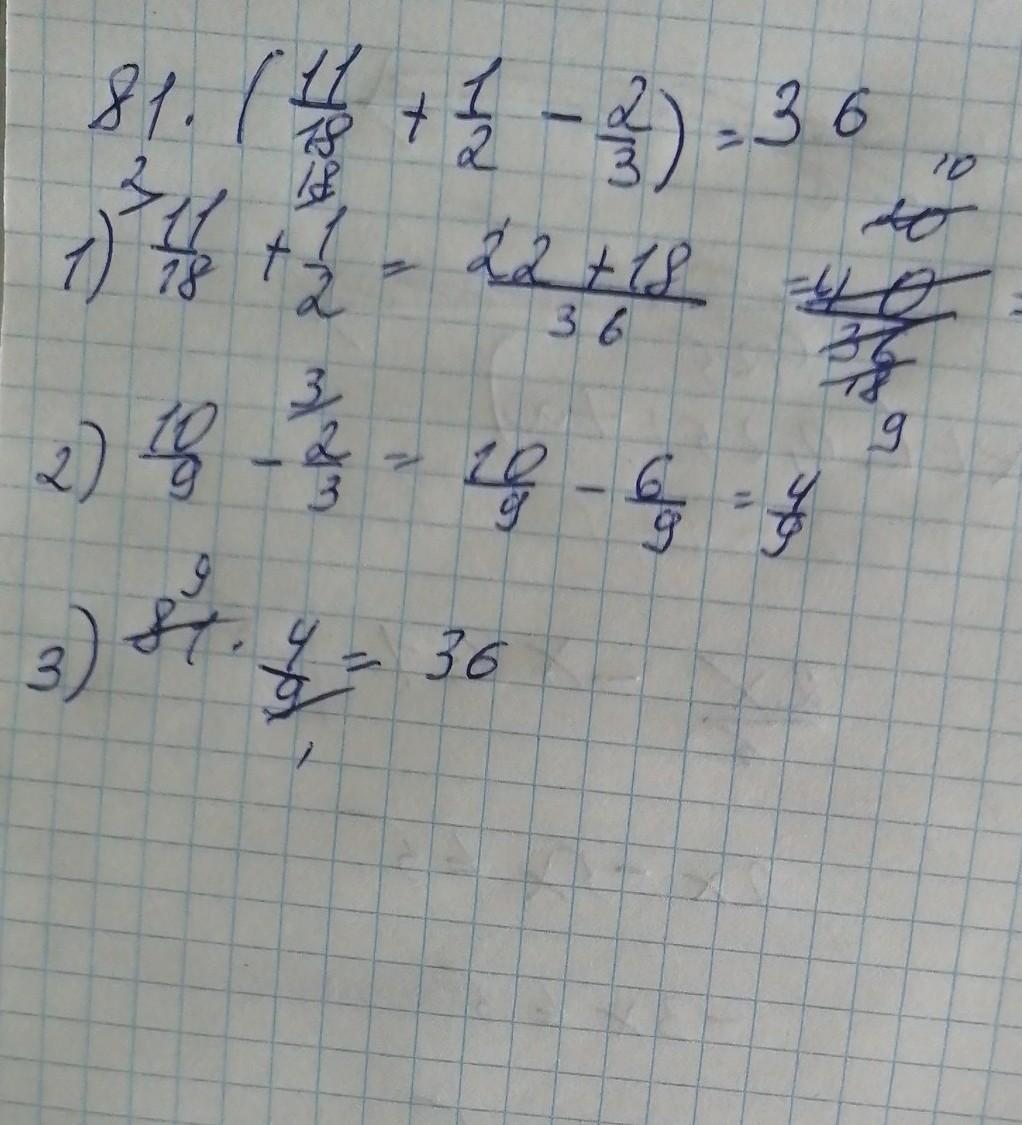 81 · (11/18 + 1/2 - 2/3) = 36
1) 2 11/18 + 18 1/2 = 22 + 18/36 = 40/36 20/18 10/9 =
2) 10/9 - 3 2/3 = 10/9 - 6/9 = 4/9
3) 81 9 · 4/9 1 = 36